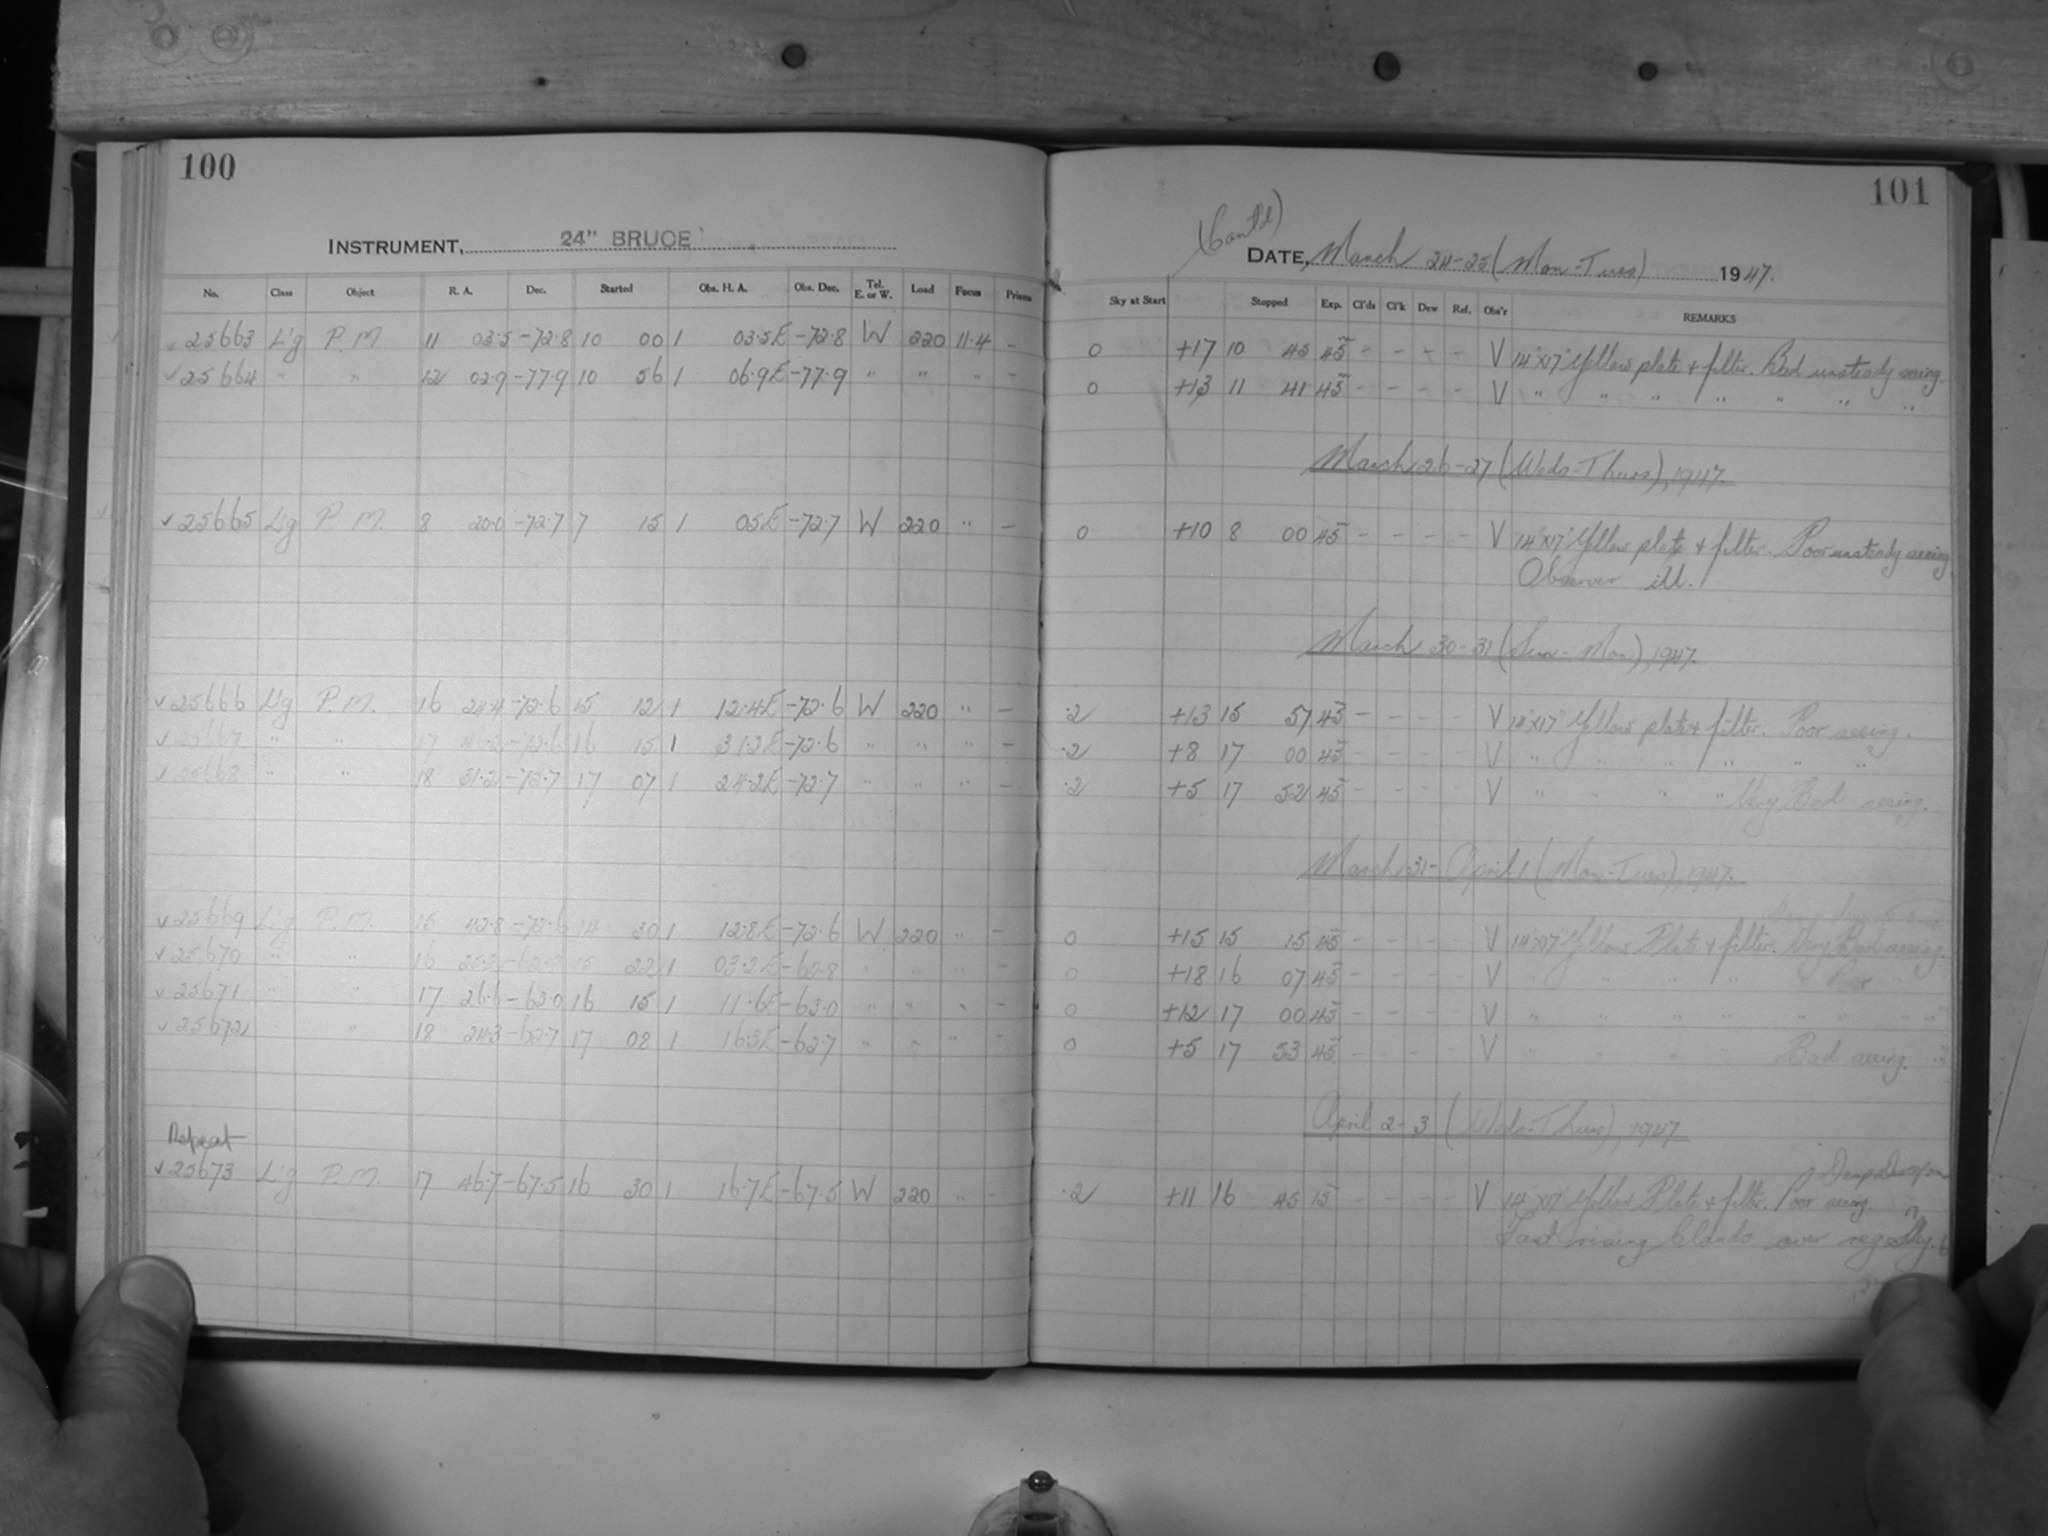 100
INSTRUMENT, 24" BRUCE
No. Class Object R. A. Dec. Started Obs. H. A. Obs. Dec. Tel. E. or W. Load Focus Prisms
✓ 25663 L'g P.M. 11 03.5 -72.8 10 00 1 03.5E -72.8 W 220 11.4 -
✓ 25664 " " 12 02.9 -77.9 10 56 1 06.9E -77.9 " " - -
✓ 25665 L'g P.M. 8 20.0 -72.7 7 15 1 05E -72.7 W 220 " -
✓ 25666 L'g P.M. 16 24.4 -72.6 15 12 1 12.4E -72.6 W 220 " -
✓ 25667 " " 17 -72.6 16 15 1 31.2E -72.6 " " " -
✓ 25668 " " 18 31.2 -72.7 17 07 1 24.2E -72.7 " " " -
✓ 25669 L'g P.M. 15 42.8 -72.6 14 30 1 12.8E -72.6 W 220 " -
✓ 25670 " " 16 15 22 1 03.2E -62.8 " " " -
✓ 25671 " " 17 26.6 -63.0 16 15 1 11.6E -63.0 " " " -
✓ 25672 " " 18 24.3 -62.7 17 08 1 16.3E -62.7 " " " -
Repeat
✓ 25673 L'g P.M. 17 46.7 -67.5 16 30 1 16.7E -67.5 W 220 " -
101
(Contd)
DATE, March 24-25 (Mon-Tues) 1947.
Sky at Start Stopped Exp. Cl'ds Cl'k Dew Ref. Obs'r REMARKS
0 +17 10 45 45 - - - - V 14"x17" Yellow plate + filter. Bad unsteady seeing.
0 +13 11 41 45 - - - - V " " " " " " "
March 26-27 (Weds-Thurs), 1947.
0 +10 8 00 45 - - - - V 14"x17" Yellow plate + filter. Poor unsteady seeing
Observer ill.
March 30-31 (Sun-Mon), 1947.
.2 +13 15 57 45 - - - - V 14"x17" Yellow plate + filter. Poor seeing.
.2 +8 17 00 45 - - - - V " " " " " "
.2 +5 17 52 45 - - - - V " " " " Very Bad seeing.
March 31-April 1 (Mon-Tues), 1947.
0 +15 15 15 45 - - - - V 14"x17" Yellow Plate + filter. Very Bad seeing.
0 +18 16 07 45 - - - - V " " " " " Poor
0 +12 17 00 45 - - - - V " " " " " " "
0 +5 17 53 45 - - - - V " " " Bad seeing.
April 2-3 (Weds-Thurs), 1947
.2 +11 16 45 15 - - - - V 14"x17" Yellow Plate + filter. Poor seeing.
Fast rising Clouds over region